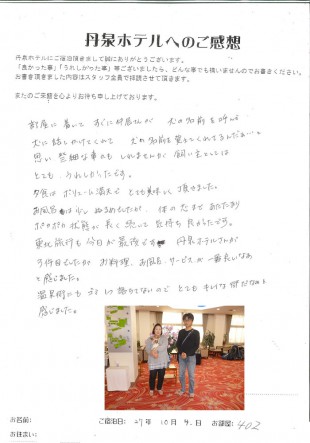 丹泉ホテルへのご感想
丹泉ホテルにご宿泊頂きまして誠にありがとうございます。
「良かった事」「うれしかった事」等ございましたら、どんな事でも構いませんのでお書きください。
お書き頂きました内容はスタッフ全員で拝読させて頂きます。
またのご来館を心よりお待ち申し上げております。
部屋に着いて すぐに仲居さんが 犬の名前を呼んで
犬に話しかけてくれて 犬の名前を覚えてくれてるんだぁ…と
思い 些細な事かも しれませんが 飼い主としては
とても うれしかったです。
夕食は ボリューム満天で とても美味しく頂けました。
お風呂は少し ぬるめでしたが、体の芯まであたたまり
ポカポカ状態が 長く続いて 気持ち 良かったです。
東北旅行も今日が最後です 丹泉ホテルさんが
3件目でしたが お料理、お風呂、サービスが 一番良いなぁ
と感じました。
温泉街にも ゴミ 1つ 落ちてないので とても キレイな 街だなぁと
感じました。
お名前:
ご宿泊日: 27年 10月 9日
お部屋: 402
お住まい: